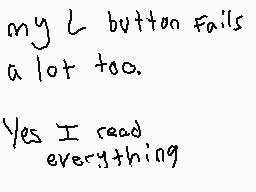 my L button Fails
a lot too.
Yes I read
everything